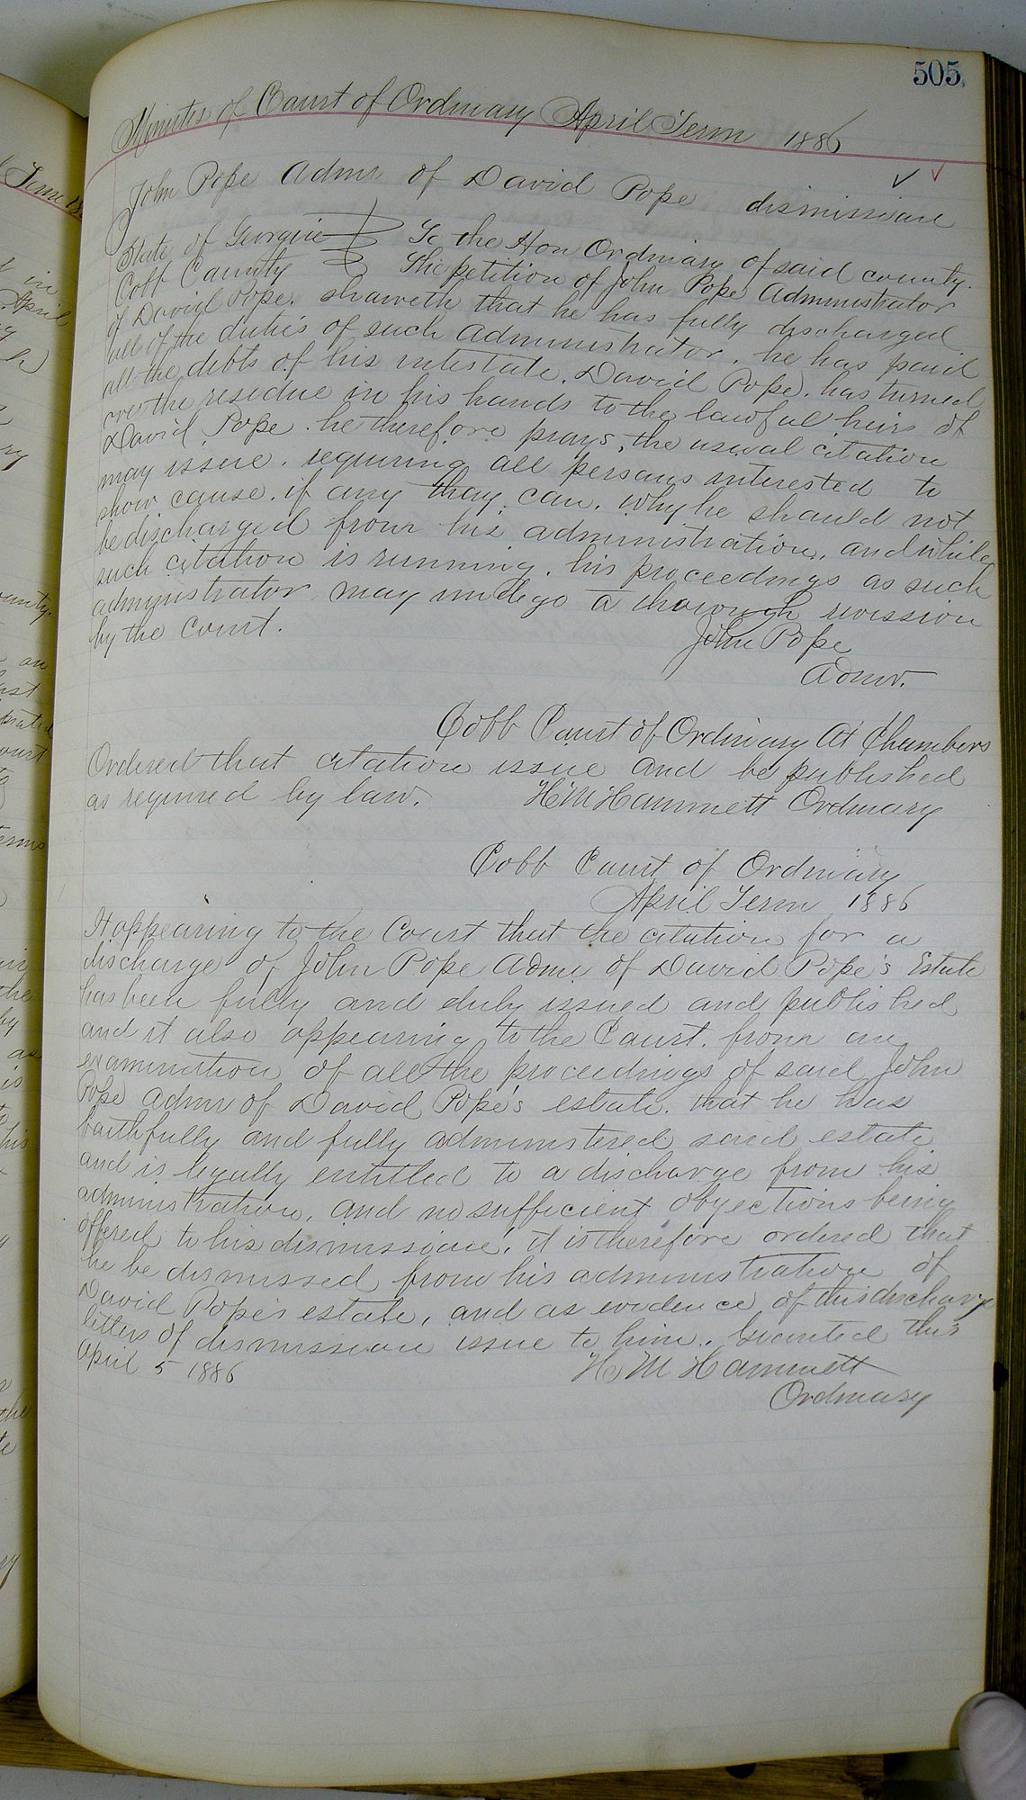 505
Minutes of Court of Ordinary April Term 1886
John Pope Admr of David Pope dismission
State of Georgia } To the Hon Ordinary of said county.
Cobb County } The petition of John Pope Administrator
of David Pope. sheweth that he has fully discharged
all of the duties of such administrator. he has paid
all the debts of his intestate, David Pope. has turned
over the residue in his hands to the lawful heirs of
David Pope. he therefore prays, the usual citation
may issue. requiring all persons interested to
show cause. if any they can. why he should not
be discharged from his administration, and while
such citation is running. his proceedings as such
administrator may undergo a thorough revission
by the Court.
John Pope
Admr.
Cobb Court of Ordinary At Chambers
Ordered that citation issue and be published
as required by law. H M Hammett Ordinary
Cobb Court of Ordinary
April Term 1886
It appearing to the Court that the citation for a
discharge of John Pope Admr of David Pope's Estate
has been fully and duly issued and published
and it also appearing to the Court. from an
examination of all the proceedings of said John
Pope admr of David Pope's estate. that he has
faithfully and fully administered said estate
and is legally entitled to a discharge from his
administration, and no sufficient objections being
offered to his dismission, it is therefore ordered that
he be dismissed from his administration of
David Pope's estate, and as evidence of this discharge
letters of dismission issue to him. Granted this
April 5 1886 H M Hammett
Ordinary